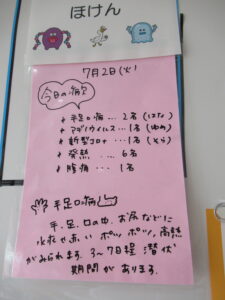 ほけん
7月2日(火)
今日の病欠
手足口病…2名(はな)
アデノウイルス…1名(ゆめ)
新型コロナ…1名(そら)
発熱…6名
腹痛…1名
手足口病
手、足、口の中、お尻などに
水ぶくや赤い ポツ、ポツ、高熱
がみられます。3〜7日程 潜伏
期間が あります。